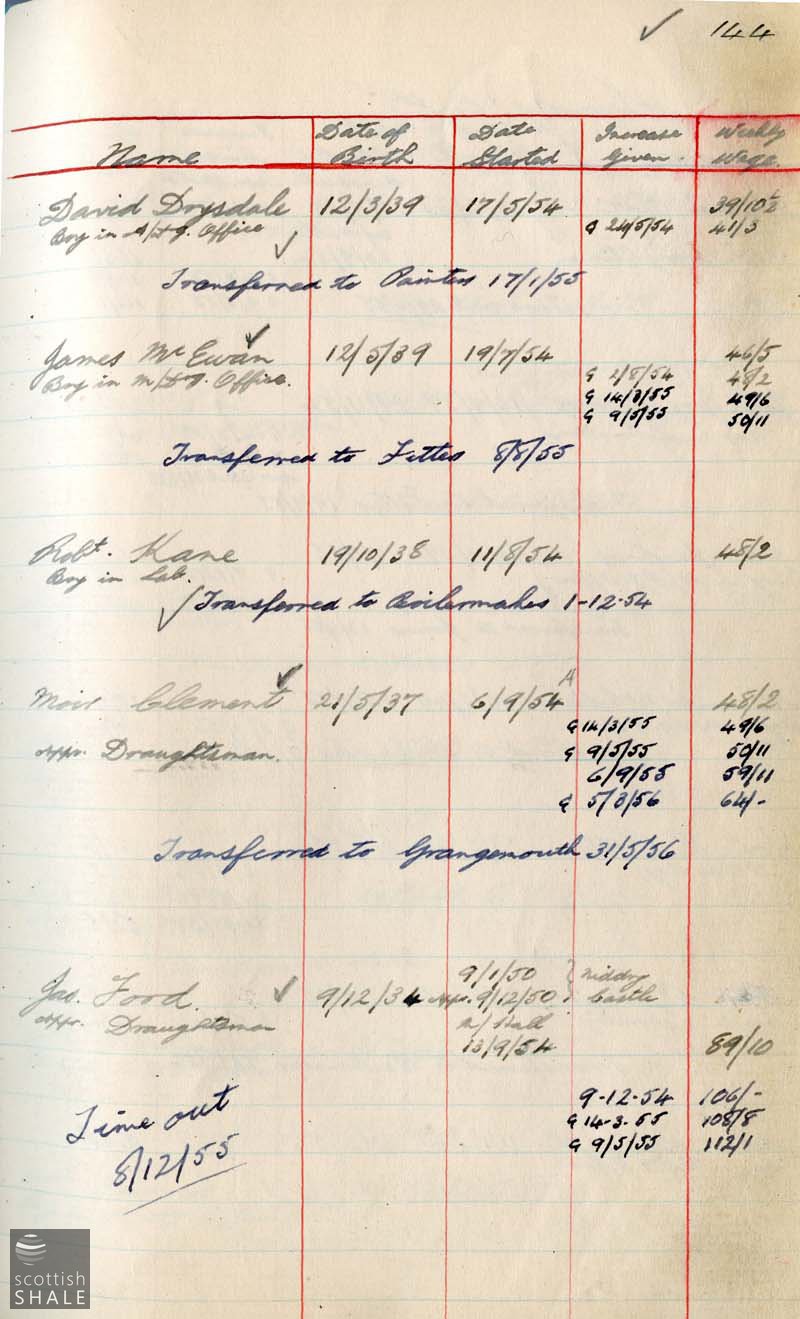 144
Name Date of Birth Date Started Increase Given. Weekly Wage.
David Drysdale 12/3/39 17/5/54 39/10½
Boy in Office G 24/5/54 41/3
Transferred to Painters 17/1/55
James Mc Ewan 12/5/39 19/7/54 46/5
Boy in Office. G 2/8/54 48/2
G 14/3/55 49/6
G 9/5/55 50/11
Transferred to Fitters 8/8/55
Robt. Kane 19/10/38 11/8/54 48/2
Boy in Lab.
Transferred to Boilermakers 1-12-54
A
Moir Clement 21/5/37 6/9/54 48/2
G 14/3/55 49/6
Appr. Draughtsman. G 9/5/55 50/11
6/9/55 59/11
G 5/3/56 64/-
Transferred to Grangemouth 31/5/56
9/1/50 Niddry
Jas. Food. 9/12/34 Appr. 9/12/50 Castle
Appr. Draughtsman
13/9/54 89/10
9-12-54 106/-
Time out G 14-3-55 108/8
8/12/55 G 9/5/55 112/1
scottish
SHALE